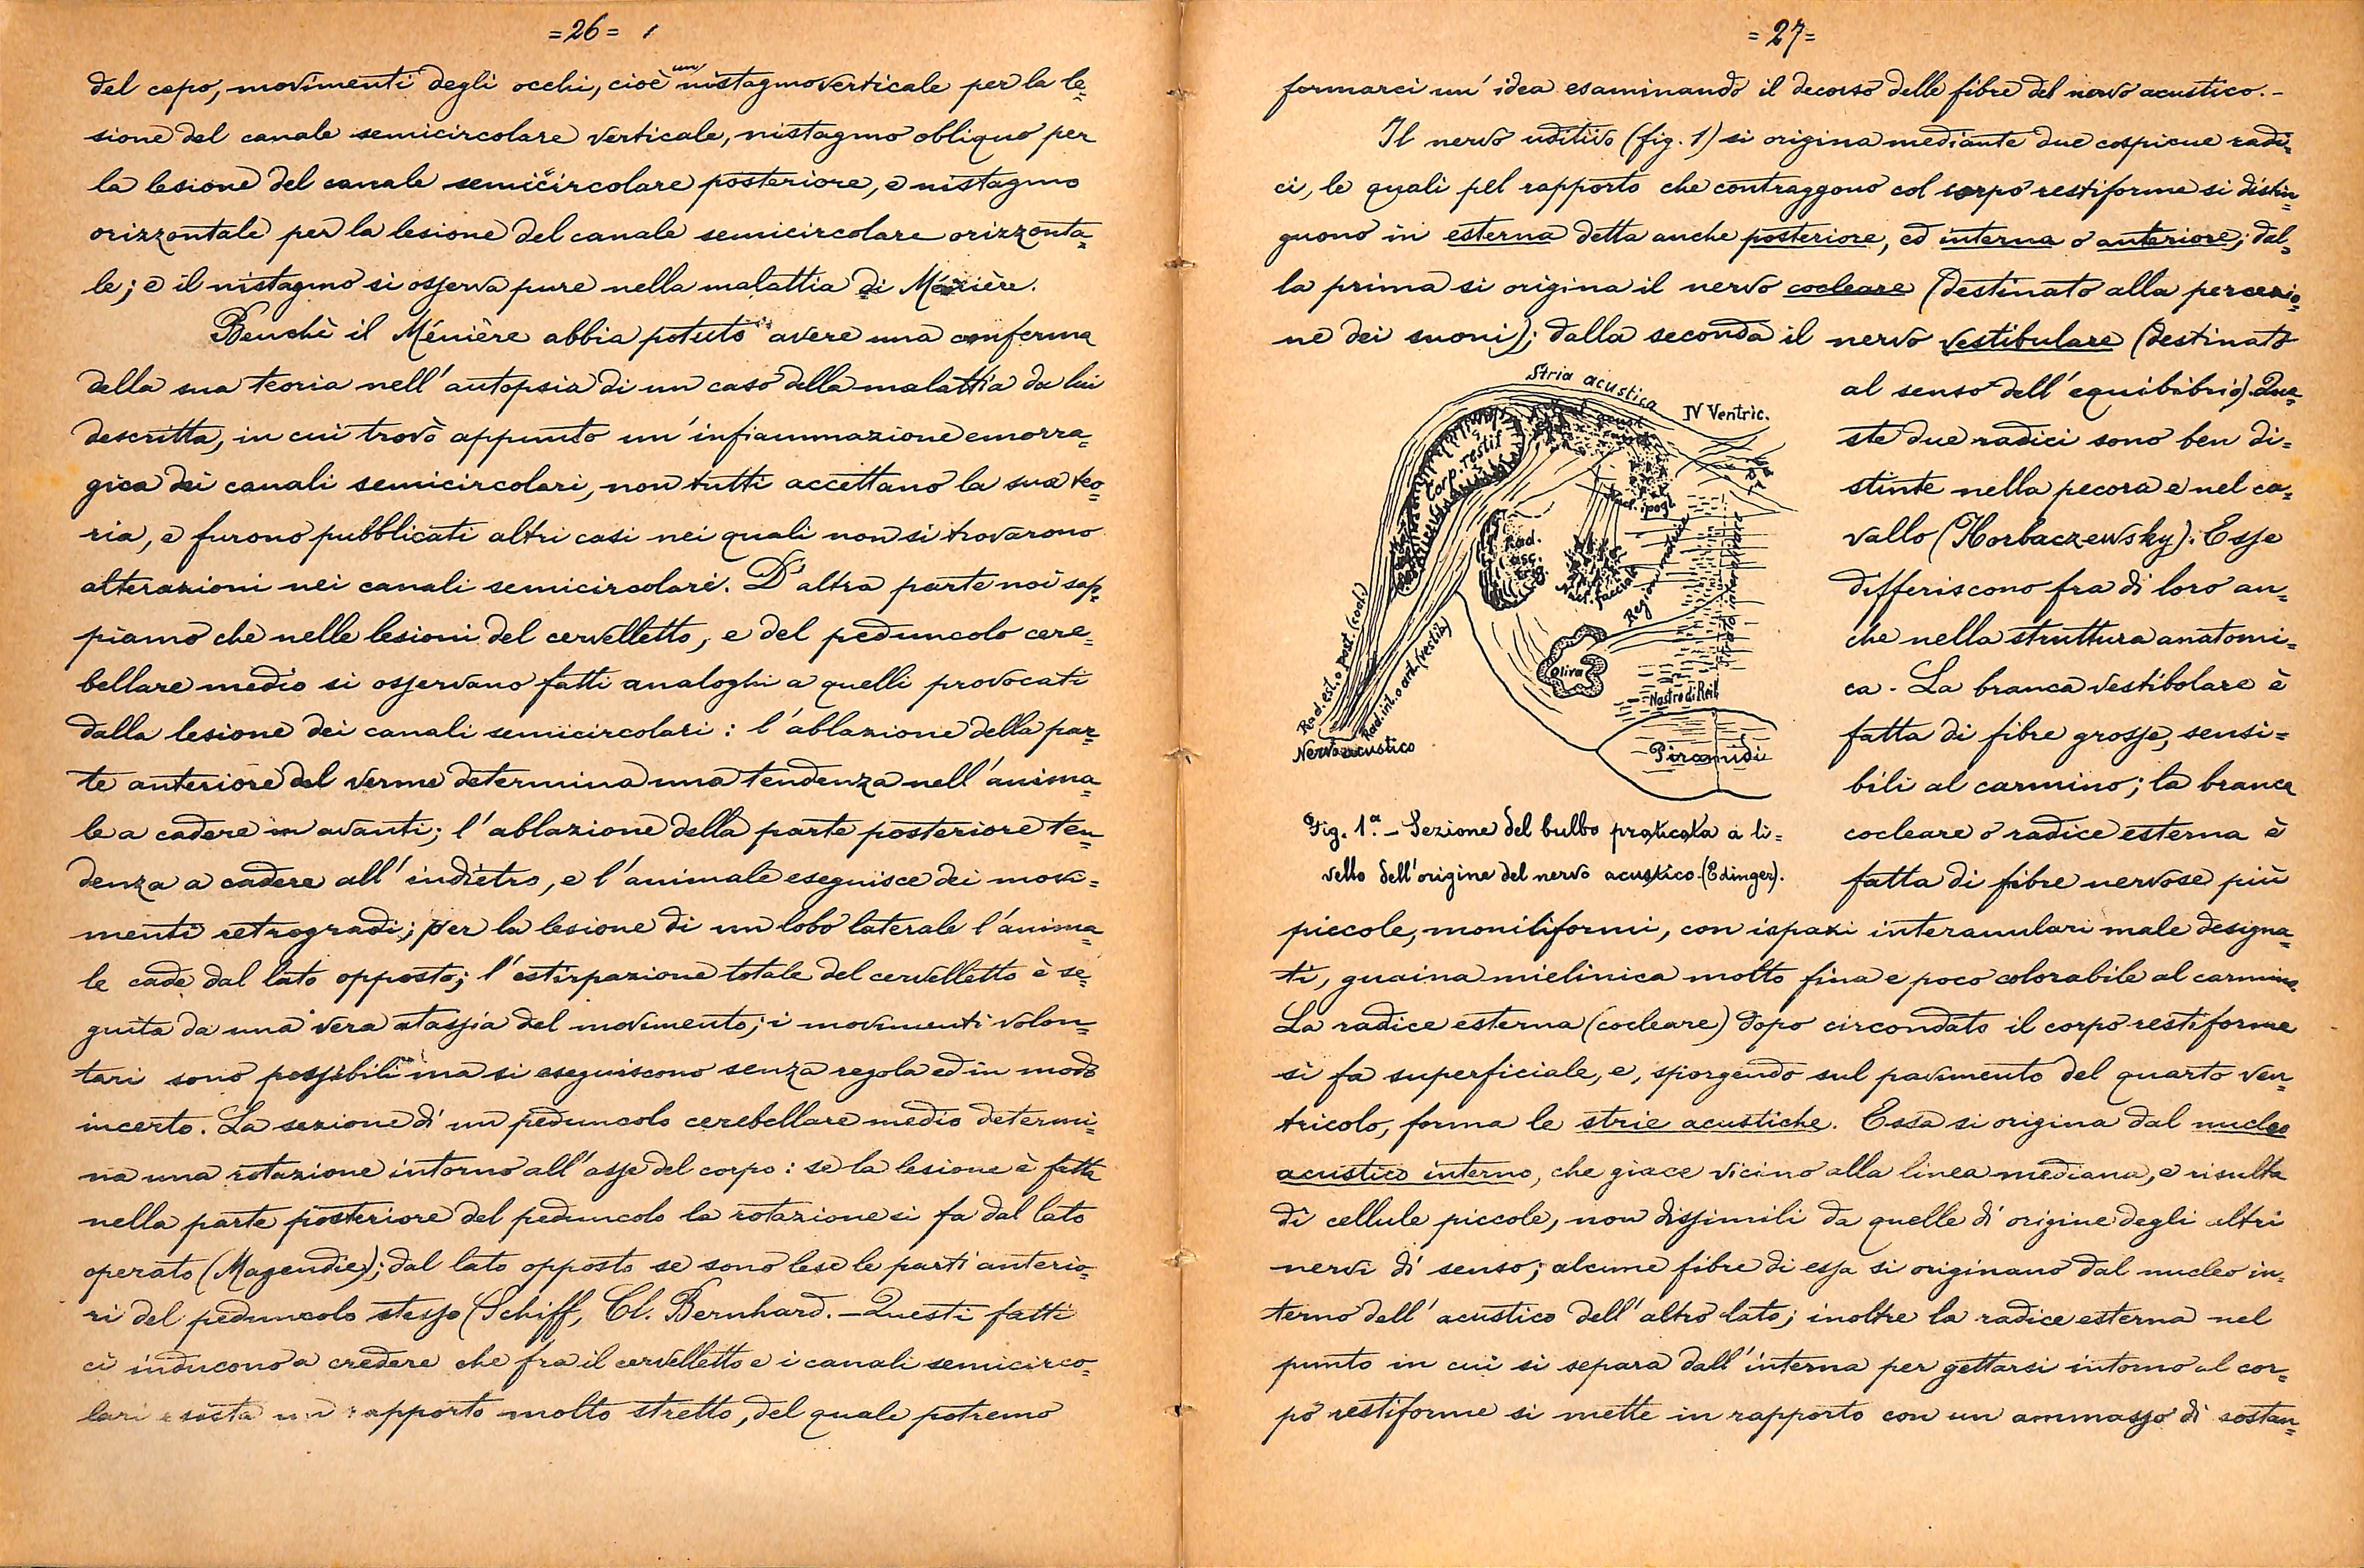 =26=
del capo, movimenti degli occhi, cioè un nistagmo verticale per la le=
sione del canale semicircolare verticale, nistagmo obliquo per
la lesione del canale semicircolare posteriore, e nistagmo
orizzontale per la lesione del canale semicircolare orizzonta=
le; e il nistagmo si osserva pure nella malattia di Ménière.
Benchè il Ménière abbia potuto avere una conferma
della sua teoria nell'autopsia di un caso della malattia da lui
descritta, in cui trovò appunto un'infiammazione emorra=
gica dei canali semicircolari, non tutti accettano la sua teo=
ria, e furono pubblicati altri casi nei quali non si trovarono
alterazioni nei canali semicircolari. D'altra parte noi sap=
piamo che nelle lesioni del cervelletto, e del peduncolo cere=
bellare medio si osservano fatti analoghi a quelli provocati
dalla lesione dei canali semicircolari: l'ablazione della par=
te anteriore del verme determina una tendenza nell'anima=
le a cadere in avanti; l'ablazione della parte posteriore ten=
denza a cadere all'indietro, e l'animale eseguisce dei movi=
menti retrogradi; per la lesione di un lobo laterale l'anima=
le cade dal lato opposto; l'estirpazione totale del cervelletto è se=
guita da una vera atassia del movimento; i movimenti volon=
tari sono possibili ma si eseguiscono senza regola ed in modo
incerto. La sezione d'un peduncolo cerebellare medio determi=
na una rotazione intorno all'asse del corpo: se la lesione è fatta
nella parte posteriore del peduncolo la rotazione si fa dal lato
operato (Magendie); dal lato opposto se sono lese le parti anterio=
ri del peduncolo stesso (Schiff, Cl. Bernhard. — Questi fatti
ci inducono a credere che fra il cervelletto e i canali semicirco=
lari esista un rapporto molto stretto, del quale potremo
=27=
formarci un'idea esaminando il decorso delle fibre del nervo acustico. -
Il nervo uditivo (fig. 1) si origina mediante due cospicue radi=
ci, le quali pel rapporto che contraggono col corpo restiforme si distin=
guono in esterna detta anche posteriore, ed interna o anteriore; dal=
la prima si origina il nervo cocleare (destinato alla percezio=
ne dei suoni); dalla seconda il nervo vestibulare (destinato
al senso dell'equibibrio). Que=
ste due radici sono ben di=
stinte nella pecora e nel ca=
vallo (Horbaczewsky). Esse
differiscono fra di loro an=
che nella struttura anatomi=
ca. La branca vestibolare è
fatta di fibre grosse, sensi=
bili al carmino; la branca
cocleare o radice esterna è
fatta di fibre nervose più
Stria acustica
IV Ventric.
Corp. restif
Nucl. ipogl
Rad. asc. trig.
Nucl. facciale
Regione motrice
Oliva
Nastro di Reil
Piramidi
Rad. est. o post. (cocl.)
Rad. int. o ant. (vestib)
Nervo acustico
Fig. 1.a — Sezione del bulbo praticata a li=
vello dell'origine del nervo acustico. (Edinger).
piccole, moniliformi, con ispazi interanulari male designa=
ti, guaina mielinica molto fina e poco colorabile al carmino.
La radice esterna (cocleare) dopo circondato il corpo restiforme
si fa superficiale, e, sporgendo sul pavimento del quarto ven=
tricolo, forma le strie acustiche. Essa si origina dal nucleo
acustico interno, che giace vicino alla linea mediana, e risulta
di cellule piccole, non dissimili da quelle d'origine degli altri
nervi di senso; alcune fibre di essa si originano dal nucleo in=
terno dell'acustico dell'altro lato; inoltre la radice esterna nel
punto in cui si separa dall'interna per gettarsi intorno al cor=
po restiforme si mette in rapporto con un ammasso di sostan=